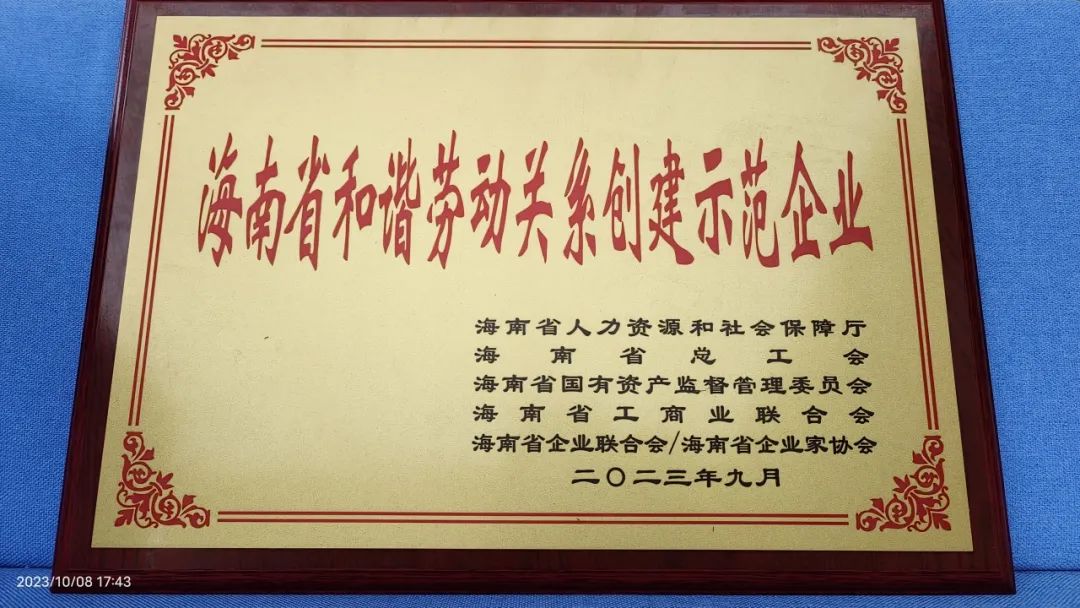 海南省和谐劳动关系创建示范企业
海南省人力资源和社会保障厅
海南省总工会
海南省国有资产监督管理委员会
海南省工商业联合会
海南省企业联合会/海南省企业家协会
二〇二三年九月
2023/10/08 17:43